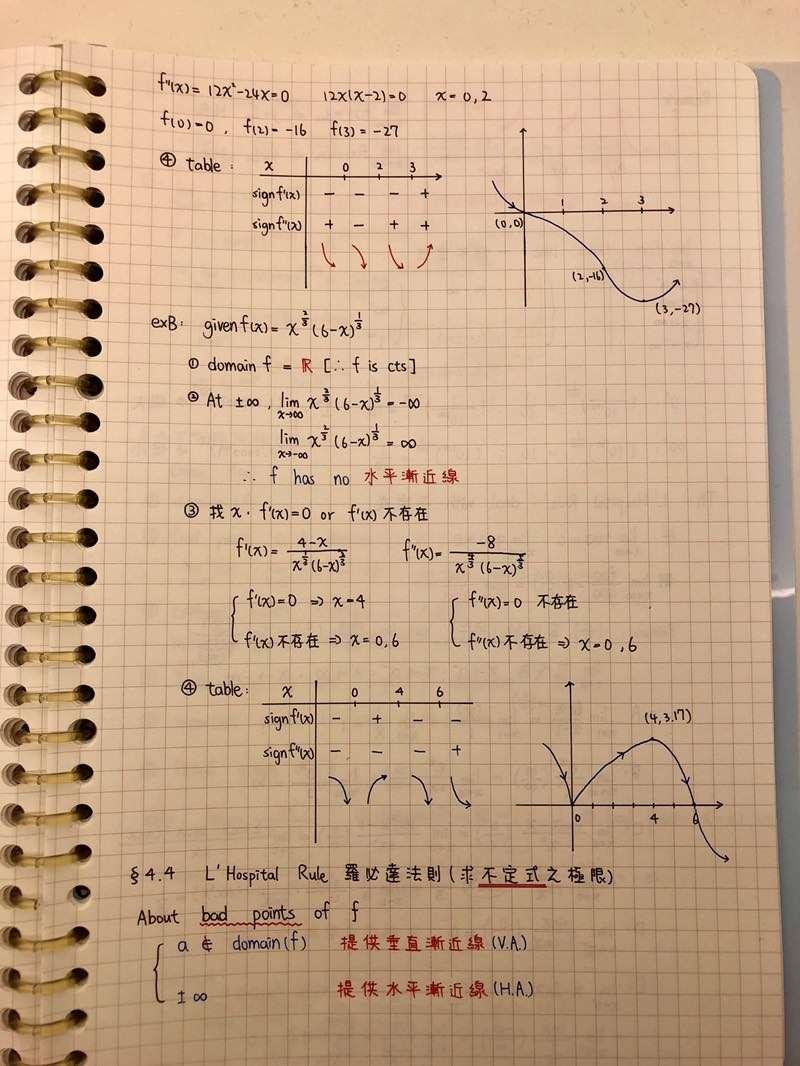 f''(x) = 12x²-24x=0 12x(x-2)=0 x=0,2
f(0)=0, f(2)=-16 f(3)=-27
④ table: x 0 2 3
sign f'(x) - - - +
sign f''(x) + - + +
1 2 3
(0,0)
(2,-16)
(3,-27)
exB: given f(x)= x^(2/3) (6-x)^(1/3)
① domain f = ℝ [∴ f is cts]
② At ±∞, lim x→∞ x^(2/3) (6-x)^(1/3) = -∞
lim x→-∞ x^(2/3) (6-x)^(1/3) = ∞
∴ f has no 水平漸近線
③ 找 x. f'(x)=0 or f'(x) 不存在
f'(x)= (4-x)/(x^(1/3) (6-x)^(2/3)) f''(x)= -8/(x^(4/3) (6-x)^(5/3))
{ f'(x)=0 ⇒ x=4 { f''(x)=0 不存在
f'(x) 不存在 ⇒ x=0,6 f''(x) 不存在 ⇒ x=0,6
④ table: x 0 4 6
sign f'(x) - + - -
sign f''(x) - - - +
(4,3.17)
0 4 6
§4.4 L'Hospital Rule 羅必達法則(求不定式之極限)
About bad points of f
{ a ∉ domain(f) 提供垂直漸近線(V.A.)
±∞ 提供水平漸近線(H.A.)